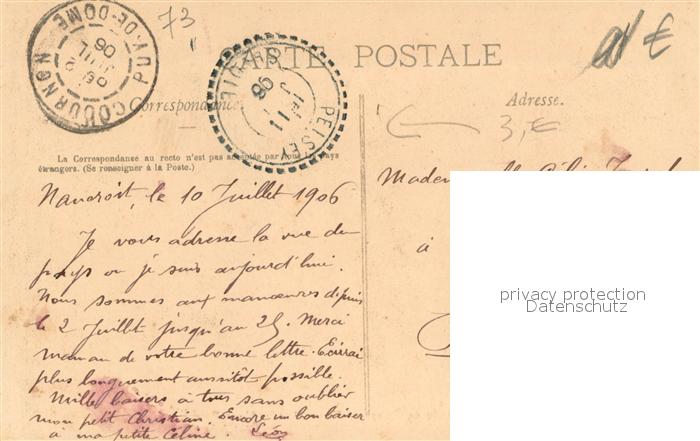 73
€
CARTE POSTALE
COURNON
PUY-DE-DOME
JUIL
06
PEISEY
SAVOIE
11
06
Correspondance
Adresse.
3,€
La Correspondance au recto n'est pas acceptée par tous les pays
étrangers. (Se renseigner à la Poste.)
, le 10 Juillet 1906
Je vous adresse la vue du
pays où je suis aujourd'hui.
Nous sommes aux manœuvres depuis
le 2 Juillet jusqu'au 25. Merci
maman de votre bonne lettre. Ecrirai
plus longuement aussitôt possible.
Mille baisers à tous sans oublier
mon petit Christian. Encore un bon baiser
à ma petite Céline. Léon
à
privacy protection
Datenschutz